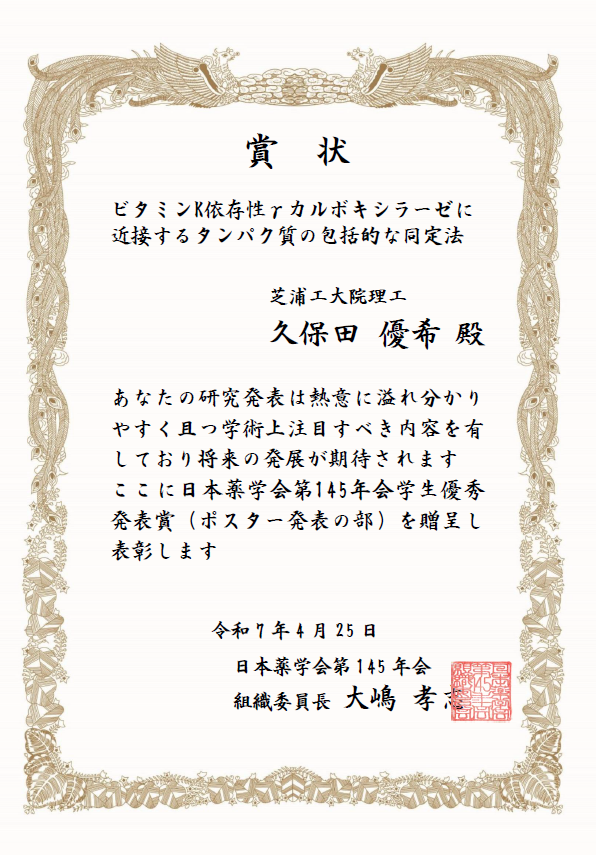 賞 状
ビタミンK依存性γカルボキシラーゼに
近接するタンパク質の包括的な同定法
芝浦工大院理工
久保田 優希 殿
あなたの研究発表は熱意に溢れ分かり
やすく且つ学術上注目すべき内容を有
しており将来の発展が期待されます
ここに日本薬学会第145年会学生優秀
発表賞（ポスター発表の部）を贈呈し
表彰します
令和7年4月25日
日本薬学会第145年会
組織委員長 大嶋 孝志